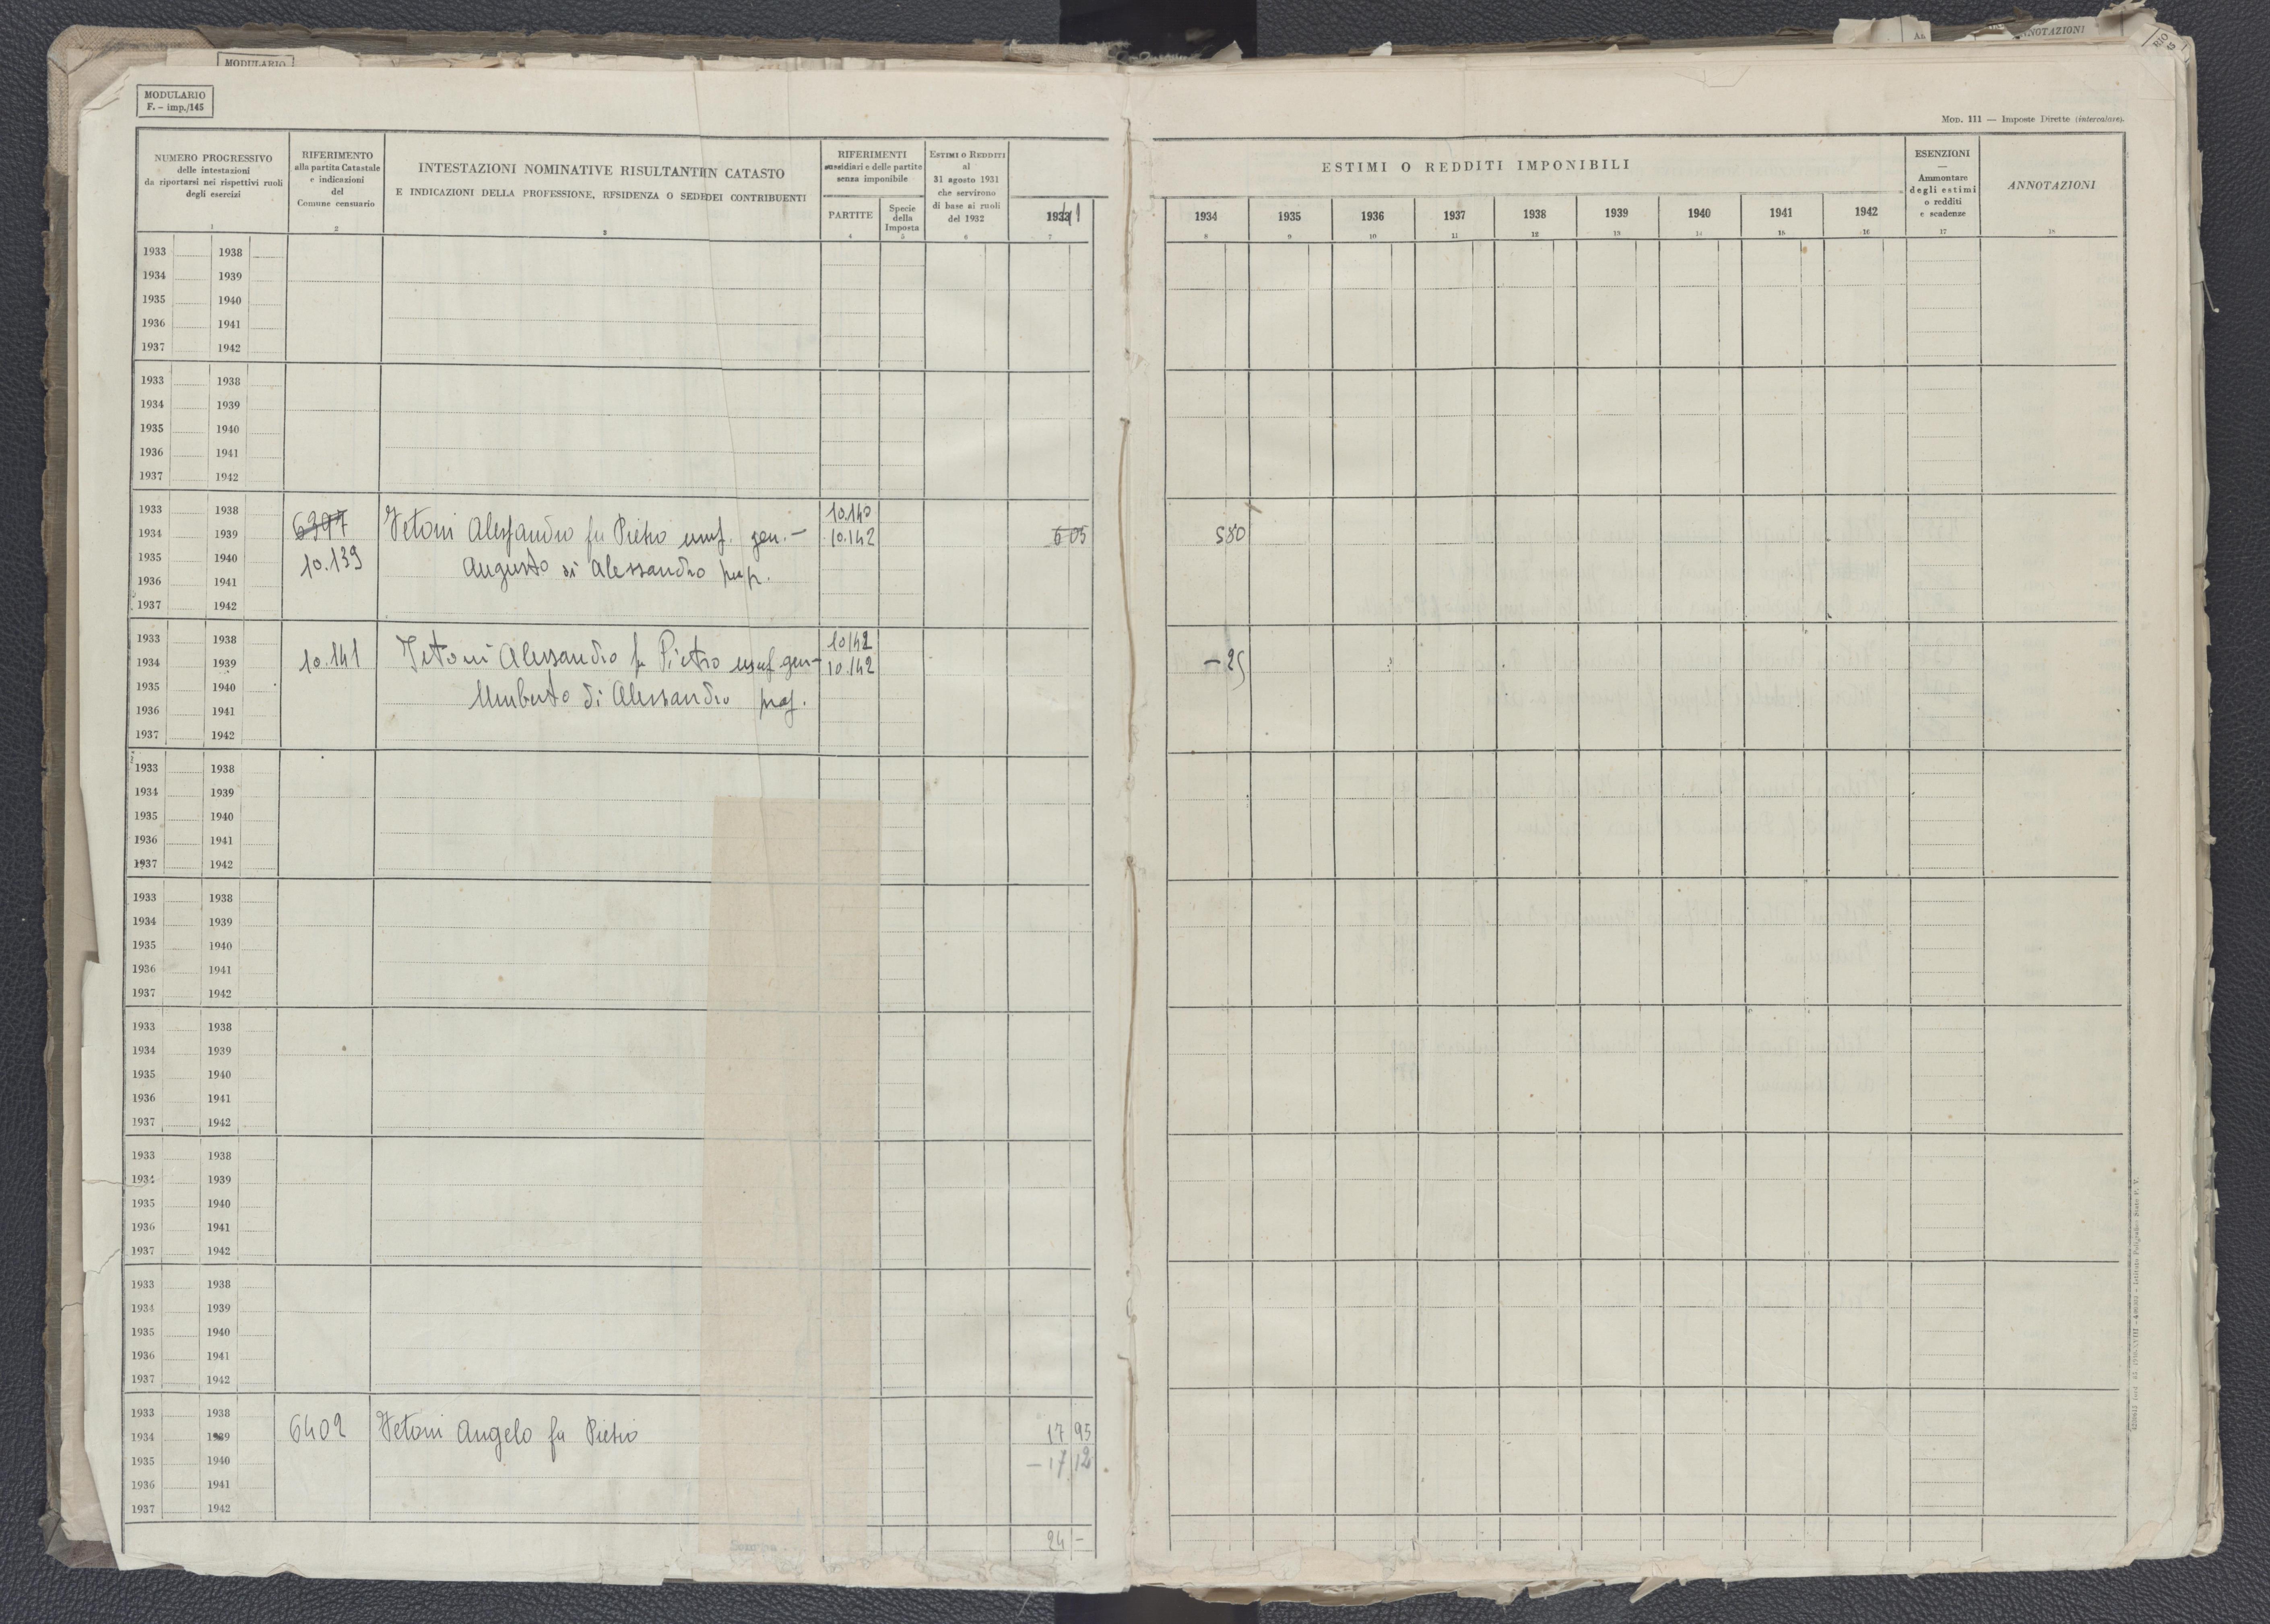 MODULARIO
ANNOTAZIONI
MODULARIO
F. - imp./145
MOD. 111 — Imposte Dirette (intercalare).
NUMERO PROGRESSIVO
delle intestazioni
da riportarsi nei rispettivi ruoli
degli esercizi
1
RIFERIMENTO
alla partita Catastale
e indicazioni
del
Comune censuario
2
INTESTAZIONI NOMINATIVE RISULTANTI IN CATASTO
E INDICAZIONI DELLA PROFESSIONE, RESIDENZA O SEDE DEI CONTRIBUENTI
3
RIFERIMENTI
sussidiari e delle partite
senza imponibile
PARTITE
4
Specie
della
Imposta
5
ESTIMI O REDDITI
al
31 agosto 1931
che servirono
di base ai ruoli
del 1932
6
1933 41
7
ESTIMI O REDDITI IMPONIBILI
1934 1935 1936 1937 1938 1939 1940 1941 1942
8 9 10 11 12 13 14 15 16
ESENZIONI
—
Ammontare
degli estimi
o redditi
e scadenze
17
ANNOTAZIONI
18
1933 1938
1934 1939
1935 1940
1936 1941
1937 1942
1933 1938
1934 1939
1935 1940
1936 1941
1937 1942
1933 1938 10.140
1934 1939 6397 Vetoni Alessandro fu Pietro usuf. gen. - 10.142 6 05 580
1935 1940 10.139 Augusto di Alessandro prop.
1936 1941
1937 1942
1933 1938 10142
1934 1939 10.141 Vetoni Alessandro fu Pietro usuf gen - 10.142 - 25
1935 1940 Umberto di Alessandro prop.
1936 1941
1937 1942
1933 1938
1934 1939
1935 1940
1936 1941
1937 1942
1933 1938
1934 1939
1935 1940
1936 1941
1937 1942
1933 1938
1934 1939
1935 1940
1936 1941
1937 1942
1933 1938
1934 1939
1935 1940
1936 1941
1937 1942
1933 1938
1934 1939
1935 1940
1936 1941
1937 1942
1933 1938
1934 1939 6402 Vetoni Angelo fu Pietro 17 95
1935 1940 - 17 12
1936 1941
1937 1942
24 -